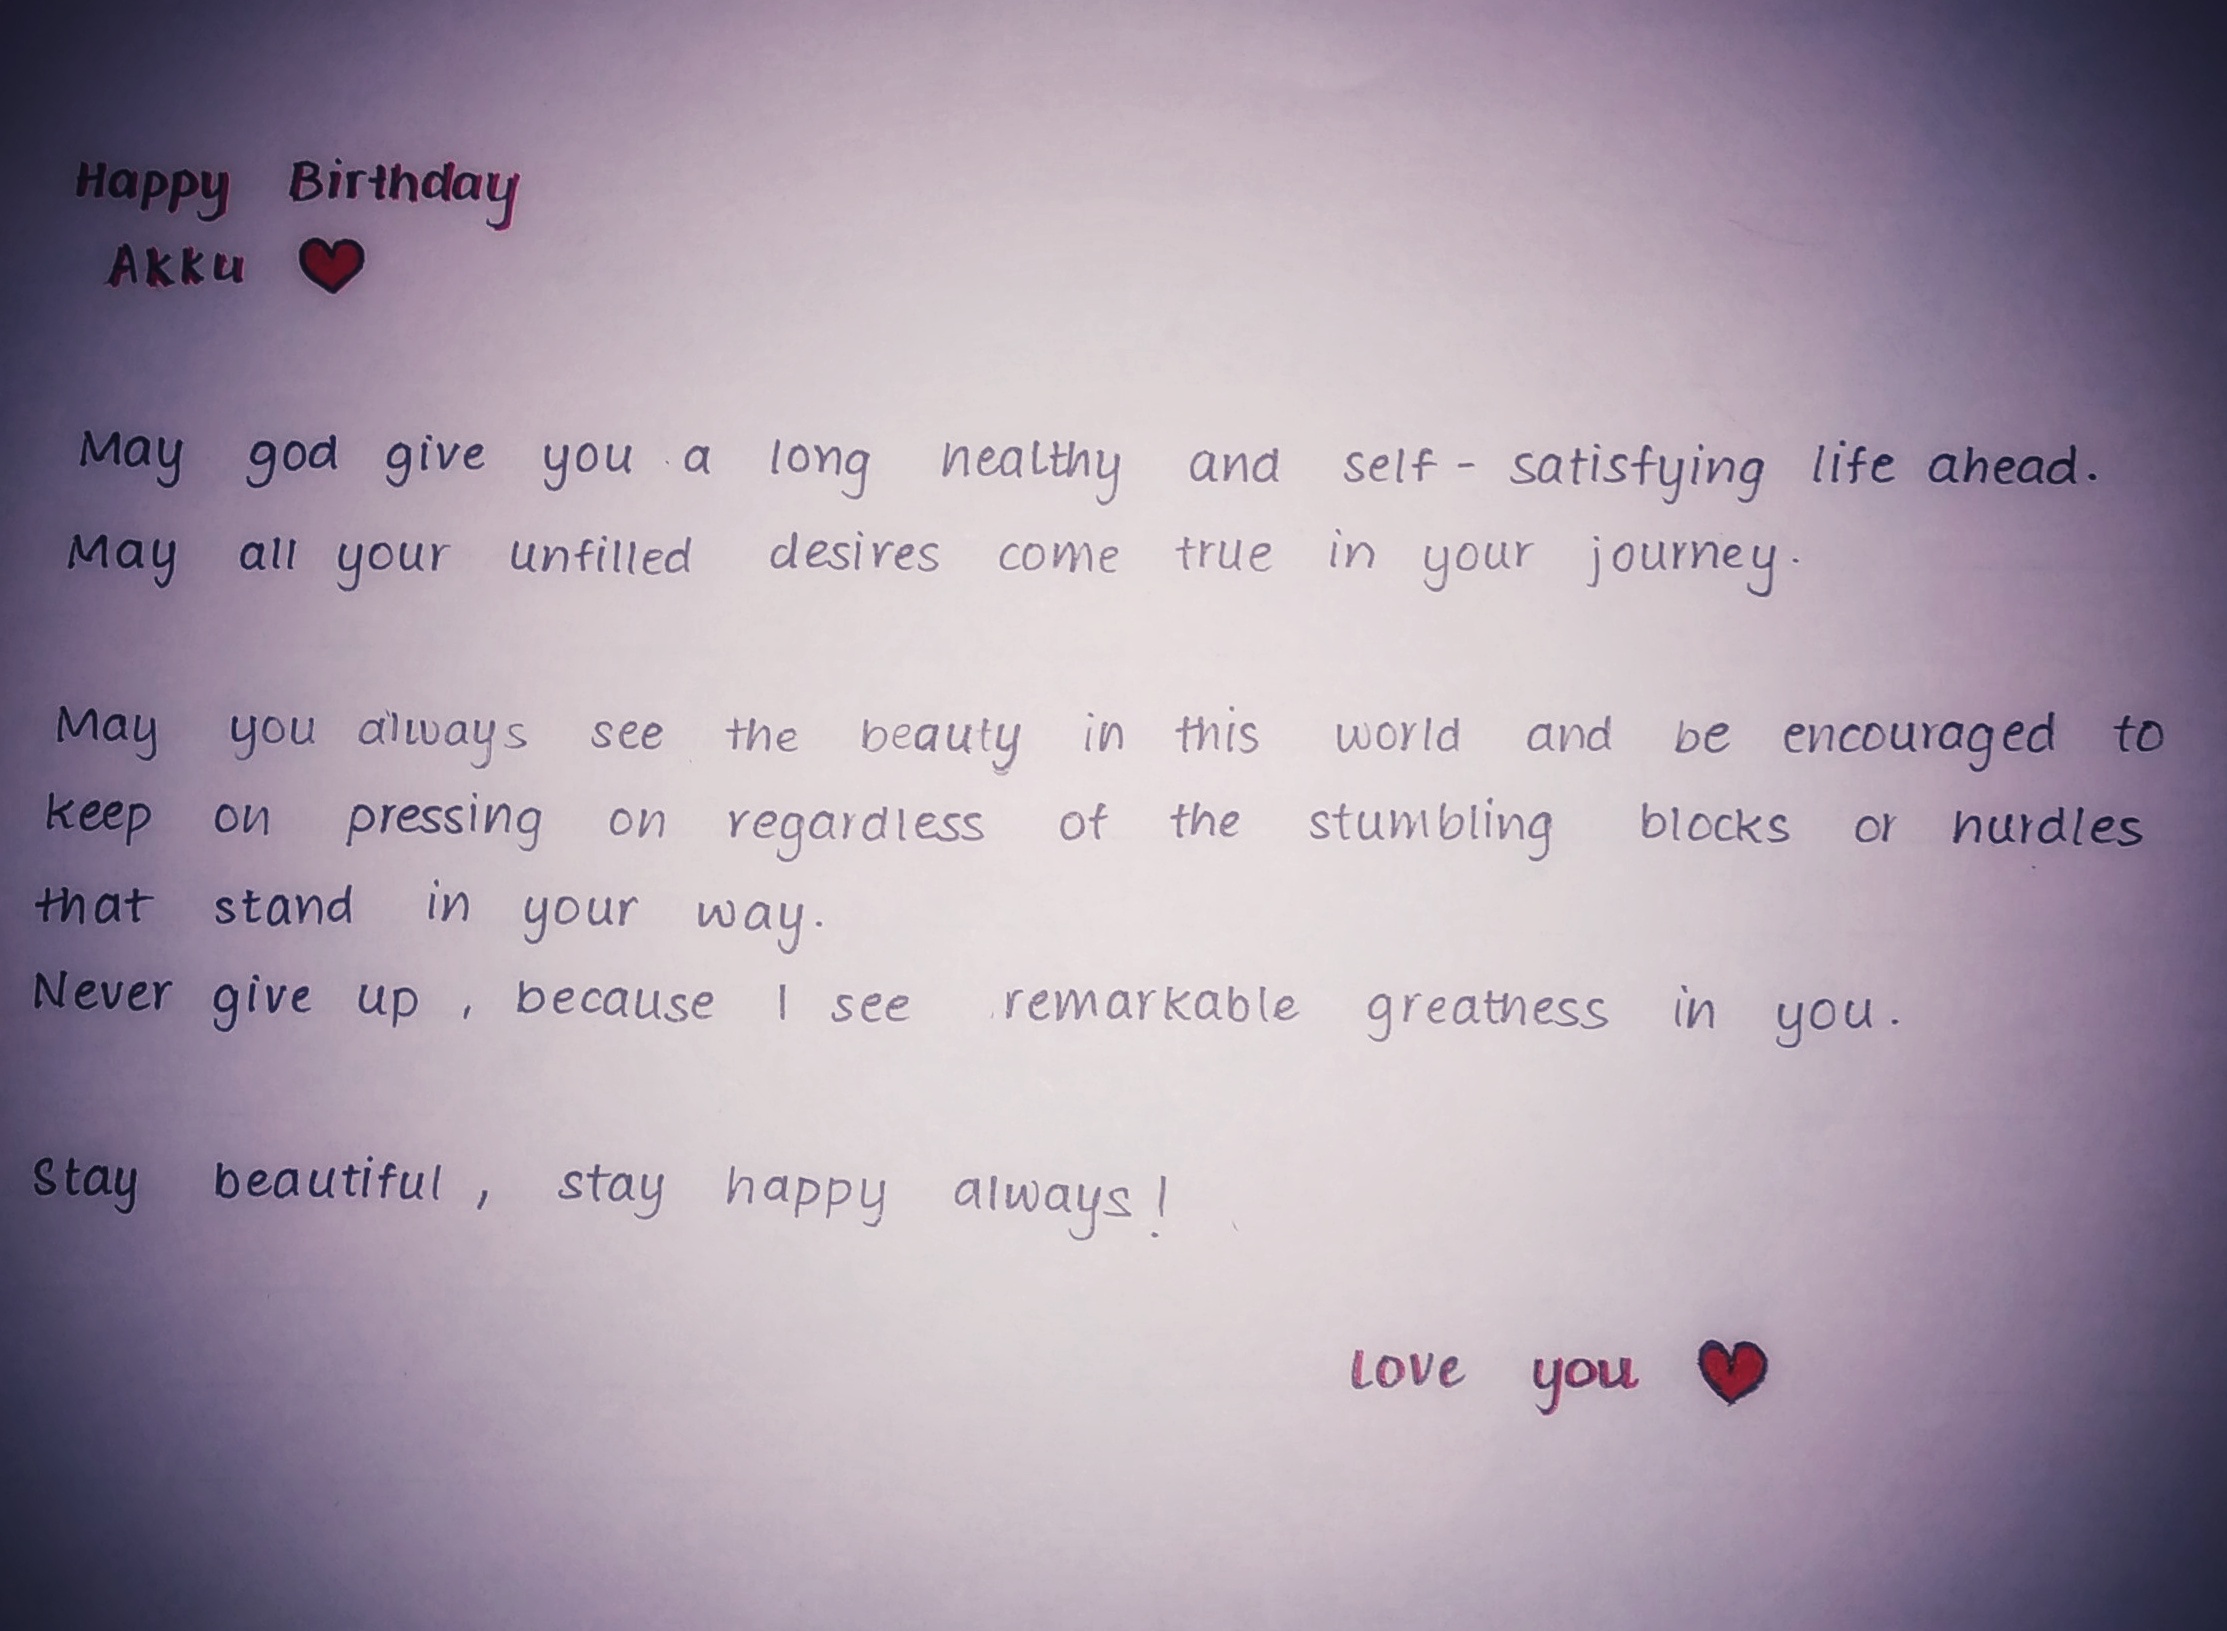 Happy Birthday
Akku ❤
May god give you a long healthy and self-satisfying life ahead.
May all your unfilled desires come true in your journey.
May you always see the beauty in this world and be encouraged to
keep on pressing on regardless of the stumbling blocks or hurdles
that stand in your way.
Never give up, because I see remarkable greatness in you.
Stay beautiful, stay happy always!
Love you ❤